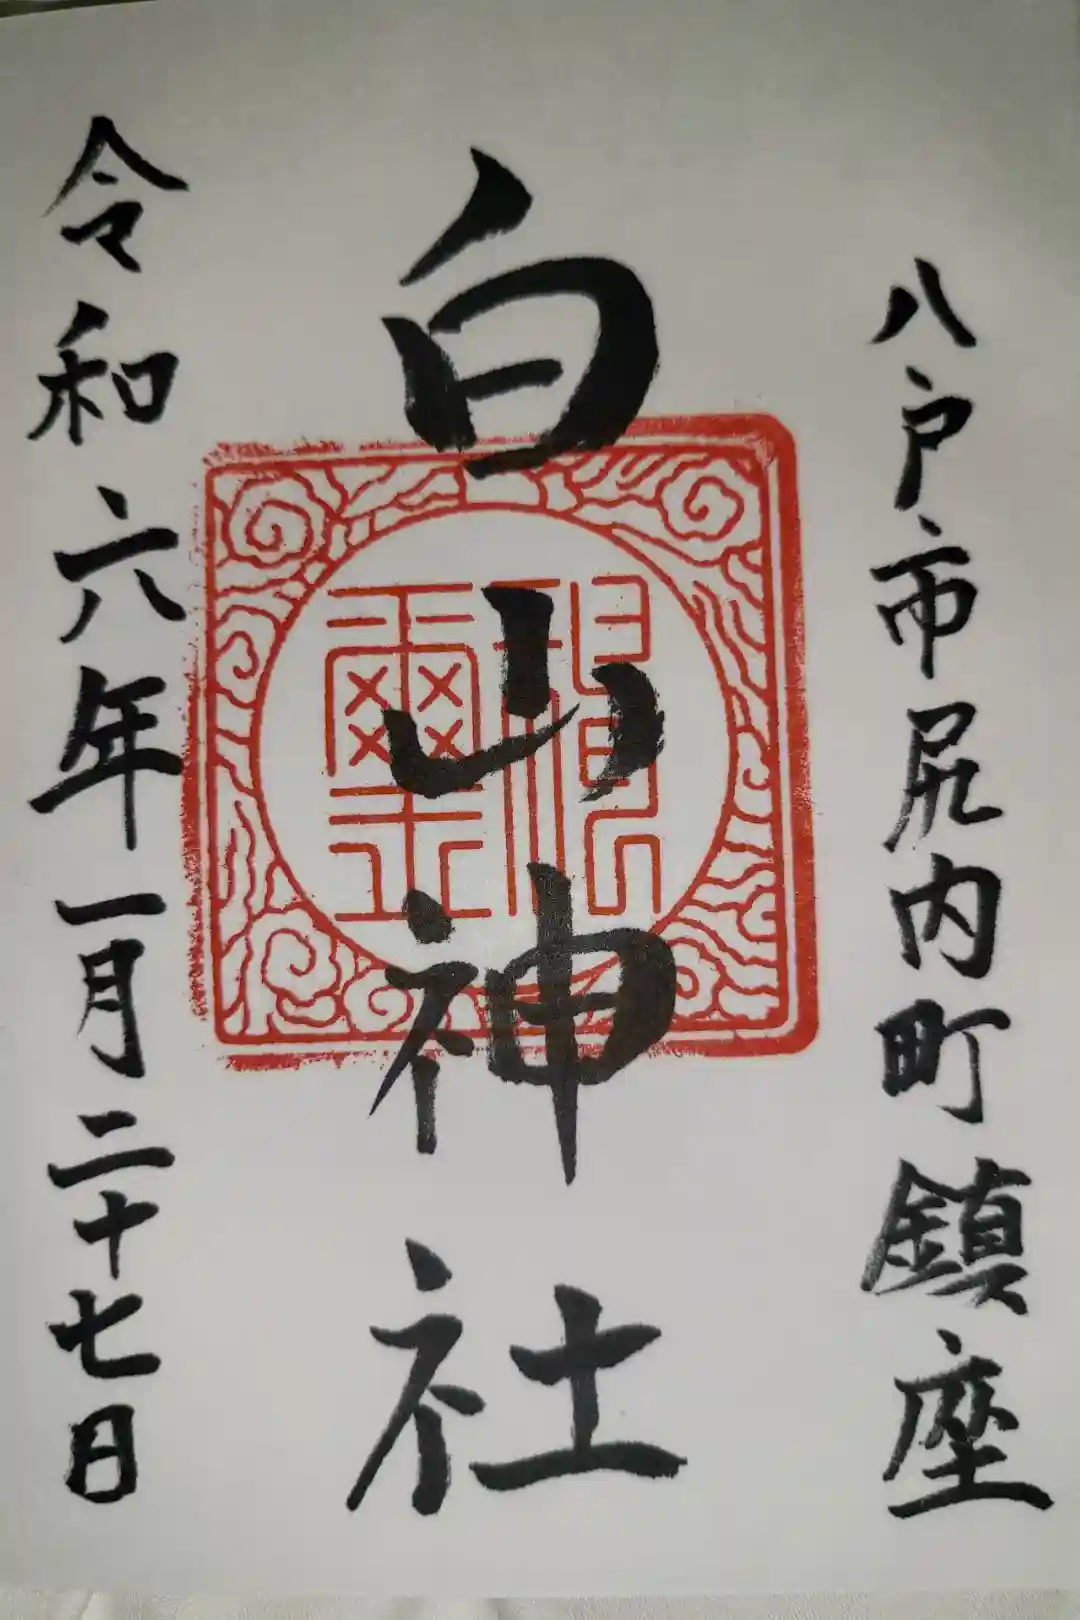 八戸市尻内町鎮座
白山神社
令和六年一月二十七日
神璽